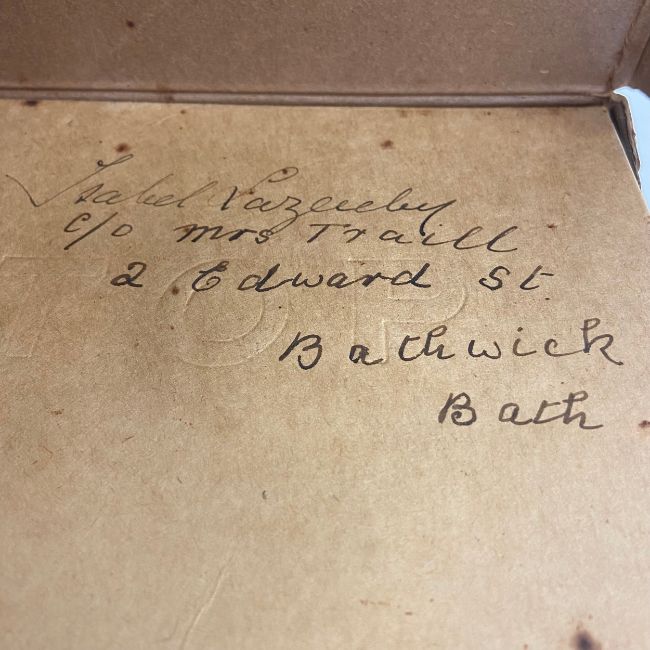 Isabel Lazenby
c/o Mrs Traill
2 Edward St
Bathwick
Bath
TOP